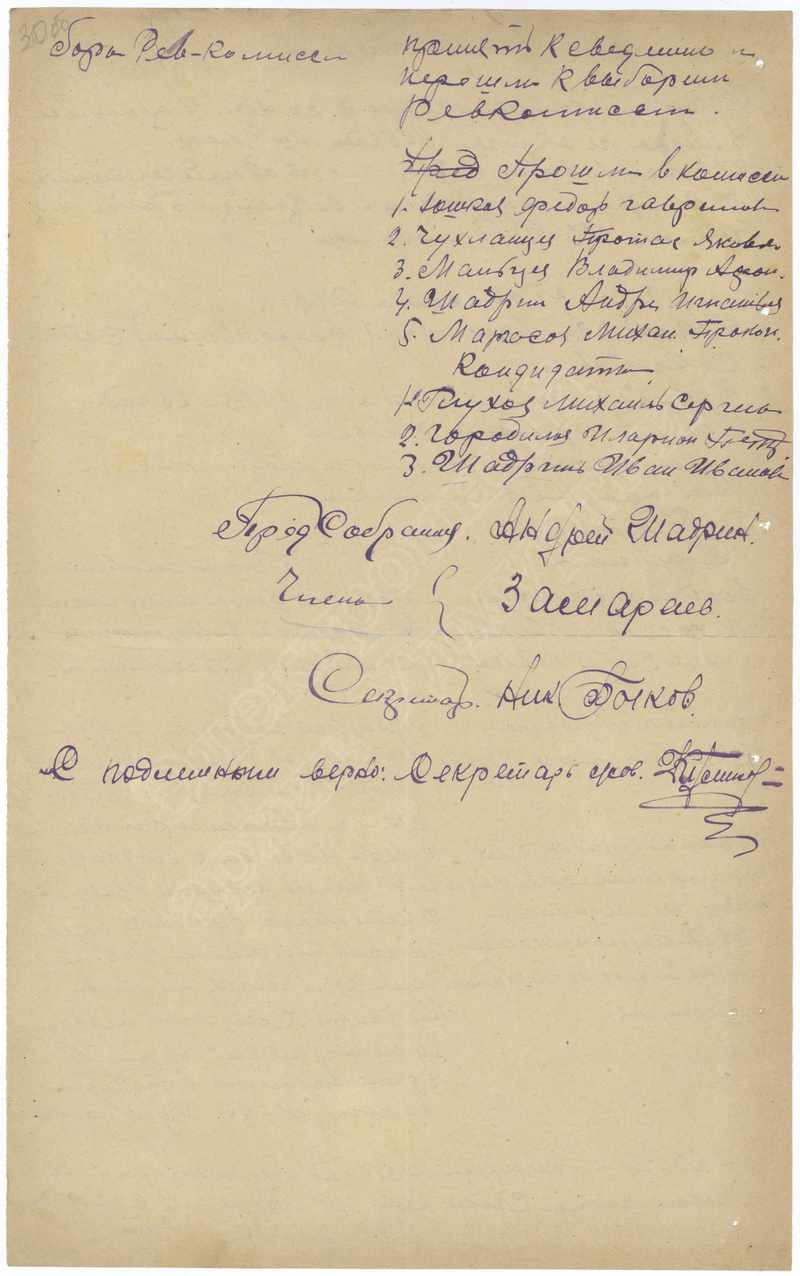 30 об
бора Рев-комиссии
принять к сведению и
перешли к выборам
Ревкомиссии.
Пред Прошли в комиссии
1. Юшков Федор Гаврилов
2. Чухланцев Протас Яковл
3. Мальцев Владимир
4. Шадрин Андре Игнатьев
5. Матосов Михаи. Прокоп.
Кандидаты
1. Глухов Михаил Сергеев
2. Городилов Иларион Петр
3. Шадрин Иван Иванов
Пред Собрания. Андрей Шадрин.
Члены { Замараев.
Секретар. Ник Бочков.
С подлинным верно: Секретарь